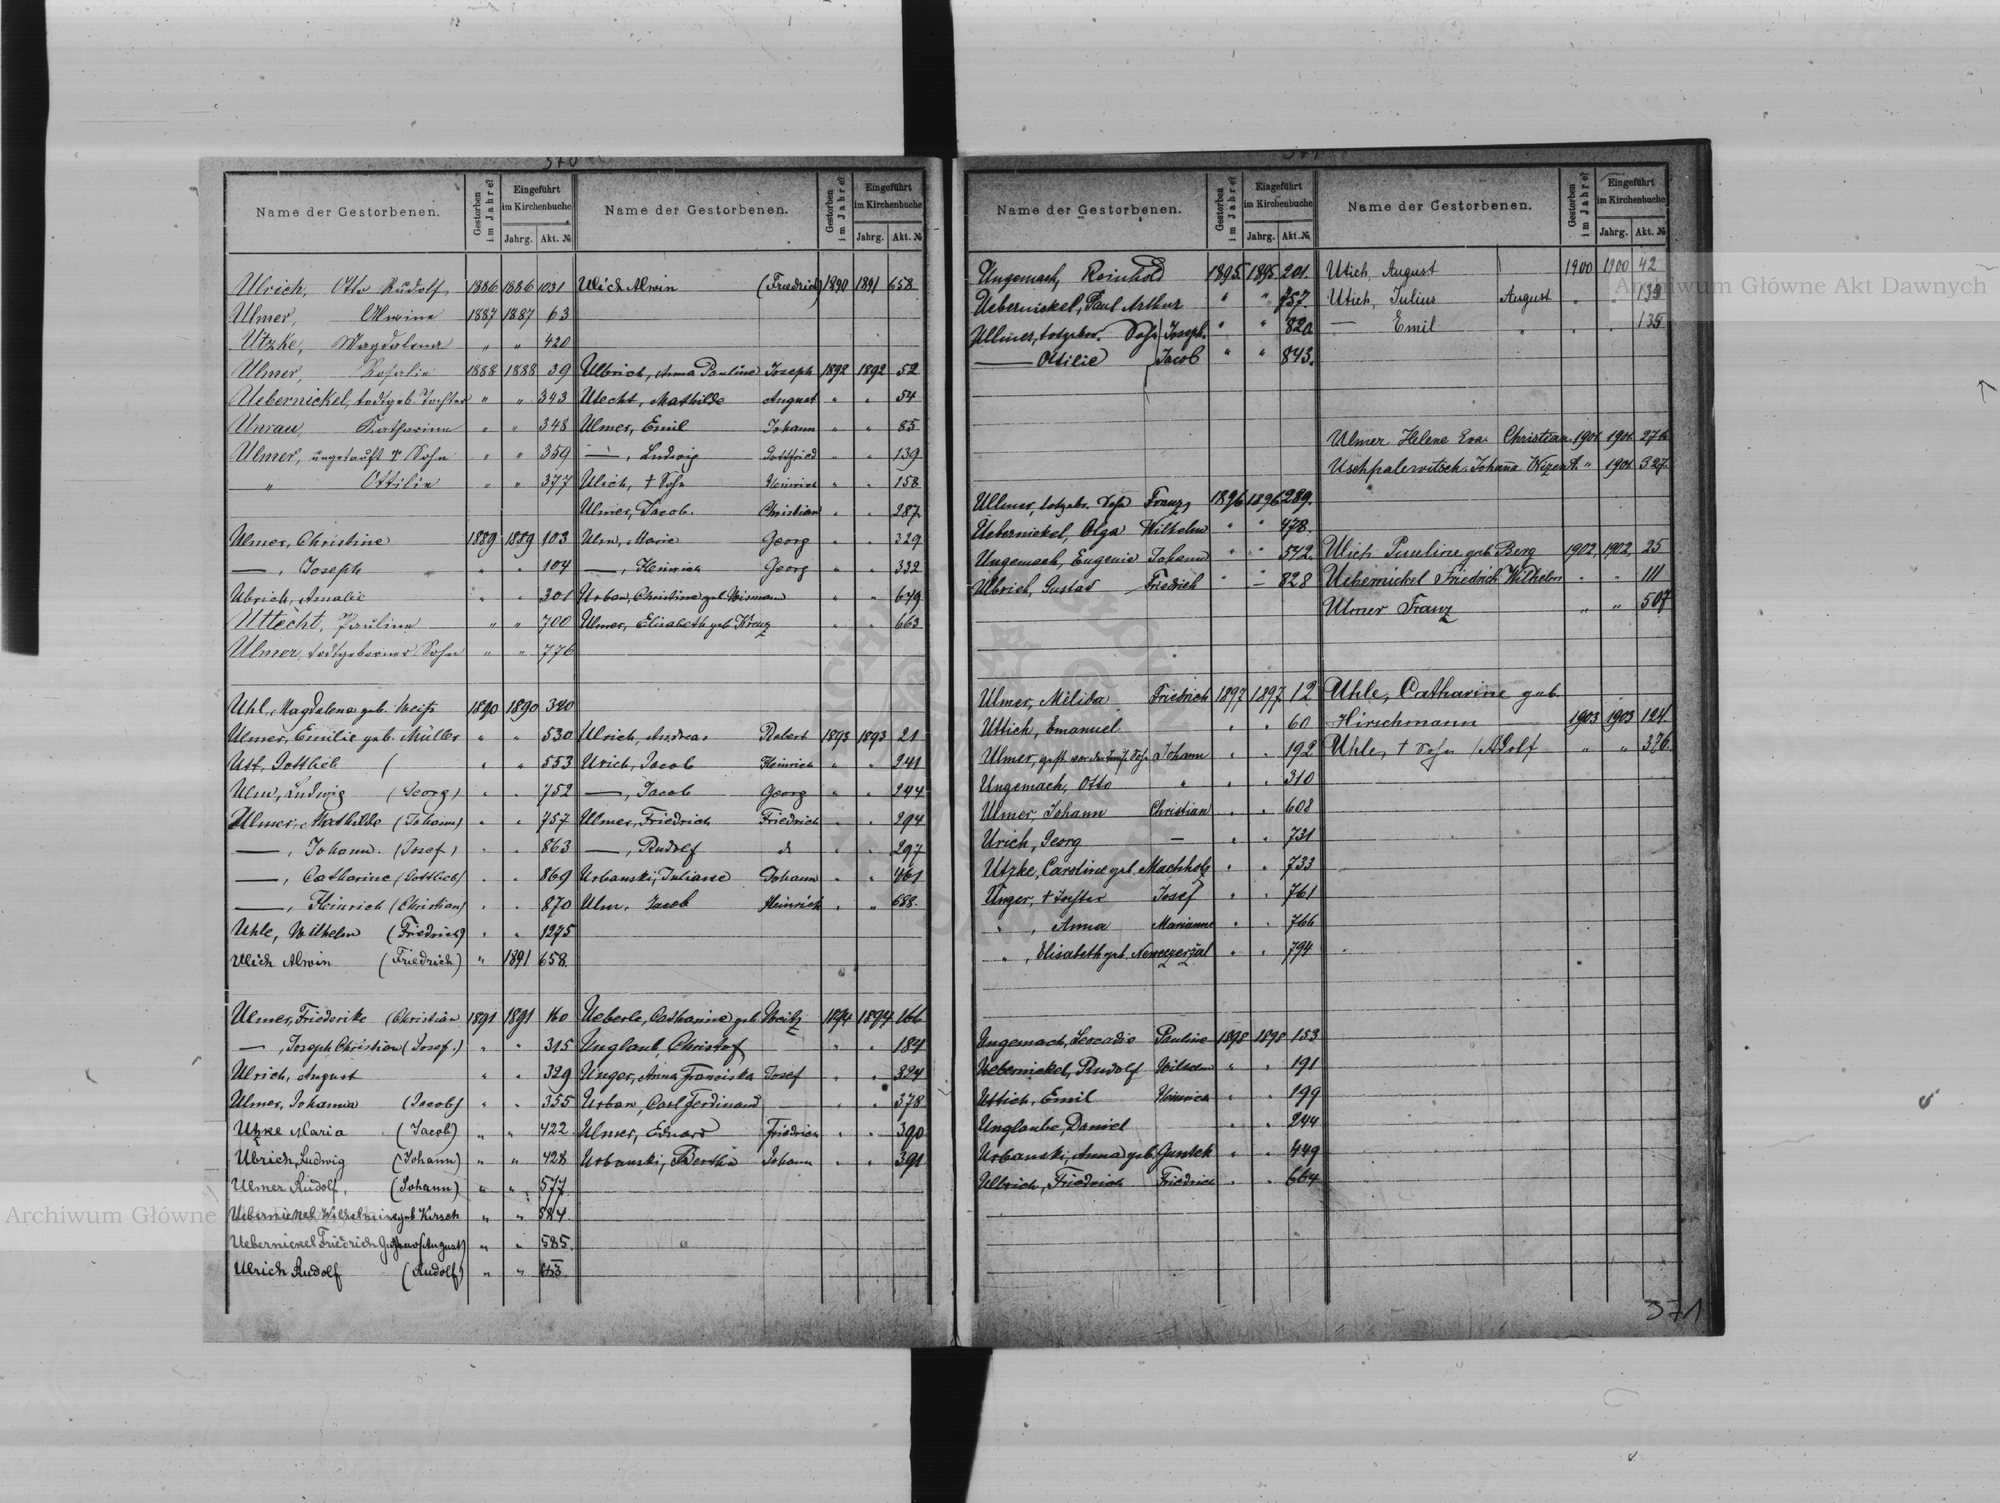 370
Name der Gestorbenen. Gestorben im Jahre Eingeführt im Kirchenbuche Jahrg. Akt. №
Ulrich, Otto Rudolf 1886 1886 1031
Ulmer, Alwine 1887 1887 63
Utzke, Magdalena " " 420
Ulmer, Rosalie 1888 1888 39
Uebernickel, todtgeb. Tochter " " 343
Unrau, Katharina " " 348
Ulmer, ungetauft r Sohn " " 359
" Ottilie " " 377
Ulmer, Christine 1889 1889 103
—, Joseph " " 104
Ulrich, Amalie " " 301
Uttecht, Pauline " " 700
Ulmer, todtgeborner Sohn " " 776
Uhl, Magdalena geb. Weiß 1890 1890 320
Ulmer, Emilie geb. Müller " " 530
Ust, Gottlieb ( " " 553
Ulm, Ludwig (Georg) " " 752
Ulmer, Mathilde (Johann) " " 757
—, Johann. (Josef) " " 863
—, Catharine (Gottlieb) " " 869
—, Heinrich (Christian) " " 870
Uhle, Wilhelm (Friedrich) " " 1275
Ulich Alwin (Friedrich) " 1891 658
Ulmer, Friederike (Christian 1891 1891 160
—, Joseph Christian (Josef.) " " 315
Ulrich, August " " 329
Ulmer, Johanna (Jacob) " " 355
Utzke Maria (Jacob) " " 422
Ulrich, Ludwig (Johann) " " 428
Ulmer Rudolf, (Johann) " " 577
Uebernickel Wilhelmine geb Kirsch " " 584
Uebernickel Friedrich Gustav (August) " " 585
Ulrich Rudolf (Rudolf) " " 613
Name der Gestorbenen. Gestorben im Jahre Eingeführt im Kirchenbuche Jahrg. Akt. №
Ulich Alwin (Friedrich) 1890 1891 658
Ulbrich, Anna Pauline Joseph 1892 1892 52
Utecht, Mathilde August " " 54
Ulmer, Emil Johann " " 85
—, Ludwig Gottfried " " 139
Ulich, † Sohn Heinrich " " 158
Ulmer, Jacob. Christian " " 287
Ulm, Marie Georg " " 329
—, Heinrich Georg " " 332
Urban, Christine geb Wismann " " 649
Ulmer, Elisabeth geb Kreuz " " 663
Ulrich, Andreas Robert 1893 1893 21
Urich, Jacob Heinrich " " 241
—, Jacob Georg " " 244
Ulmer, Friedrich Friedrich " " 294
—, Rudolf do " " 297
Urbanski, Julianne Johann " " 461
Ulm, Jacob Heinrich " " 688
Ueberle, Catharine geb Weitz 1894 1894 166
Unglaub, Christof " " 184
Unger, Anna Franciska Josef " " 324
Urban, Carl Ferdinand — " " 378
Ulmer, Eduard Friedrich " " 390
Urbanski, Bertha Johann " " 391
371
Name der Gestorbenen. Gestorben im Jahre Eingeführt im Kirchenbuche Jahrg. Akt. №
Ungemach, Reinhold 1895 1895 201.
Uebernickel, Paul Arthur " " 757.
Ullmer, todgebor. Sohn Joseph. " " 820
— Ottilie Jacob " " 843.
Ullmer, todgebr. Sohn Franz 1896 1896 289.
Uebernickel, Olga Wilhelm " " 478.
Ungemach, Eugenie Johann " " 542.
Ulbrich, Gustav Friedrich " " 828
Ulmer, Milida Friedrich 1897 1897 12
Uttich, Emanuel " " 60
Ulmer, gest. vor der Taufe Sohn Johann " " 192
Ungemach, Otto " " " 310
Ulmer, Johann Christian " " 608
Urich, Georg — " " 731
Utzke, Caroline geb. Machholz " " 733
Unger, † Tochter Josef " " 761
", Anna Marianne " " 766
", Elisabeth geb. " " 794
Ungemach, Leocadie Pauline 1898 1898 153
Uebernickel, Rudolf Wilhelm " " 191
Uttich, Emil Heinrich " " 199
Unglaube, Daniel " " 244
Urbanski, Anna geb. Guntsch " " 449
Ulbrich, Friedrich Friedrich " " 664
Name der Gestorbenen. Gestorben im Jahre Eingeführt im Kirchenbuche Jahrg. Akt. №
Utich, August 1900 1900 42
Utich, Julius August " "
— Emil " " " 135
Ulmer Helene Eva Christian 1901 1901 276
Uschpalewitsch Johanna " 1901 327
Ulich Pauline geb Berg 1902 1902 25
Uebernickel Friedrich Wilhelm " " 111
Ulmer Franz " " 507
Uhle, Catharine geb.
Hirschmann — 1903 1903 124
Uhle, † Sohn Adolf " " 376
371
Archiwum Główne Akt Dawnych
Archiwum Główne